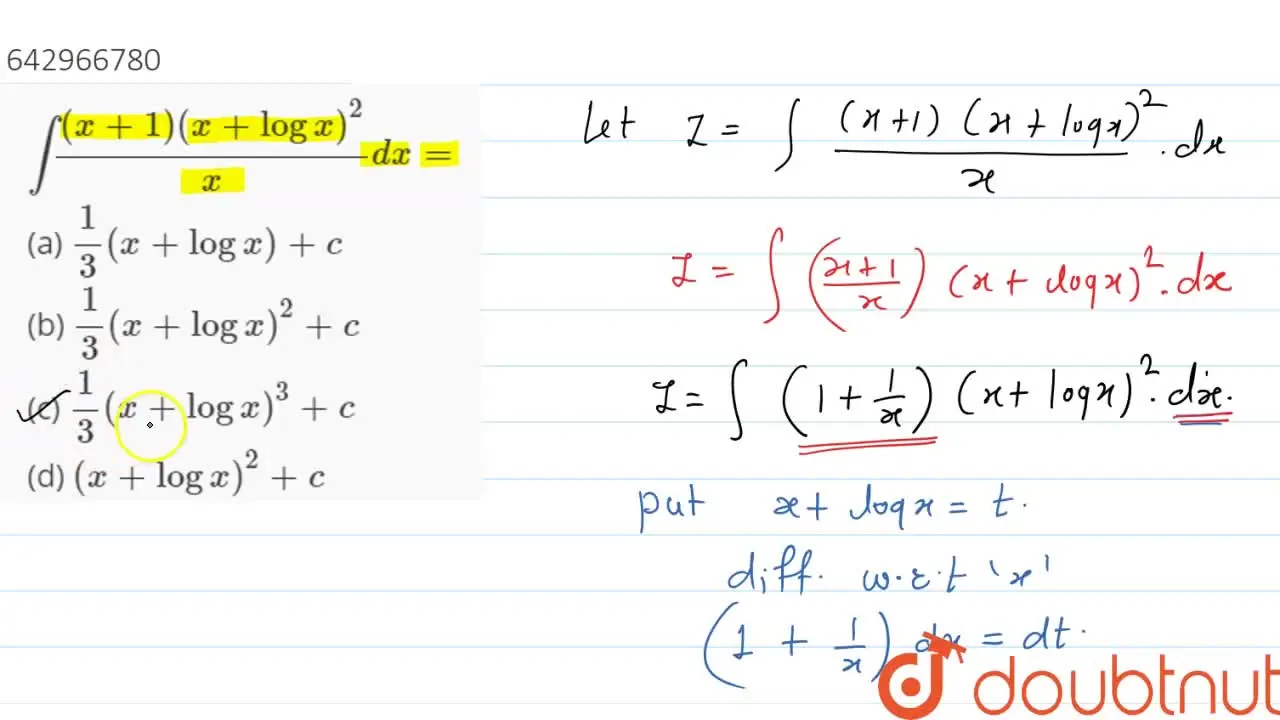 642966780
∫ (x + 1)(x + log x)² / x dx =
(a) 1/3 (x + log x) + c
(b) 1/3 (x + log x)² + c
(c) 1/3 (x + log x)³ + c
(d) (x + log x)² + c
Let I = ∫ (x+1) (x + log x)² / x . dx
I = ∫ (x+1 / x) (x + log x)² . dx
I = ∫ (1 + 1/x) (x + log x)² . dx.
put x + log x = t.
diff. w.r.t 'x'
(1 + 1/x) dx = dt.
doubtnut